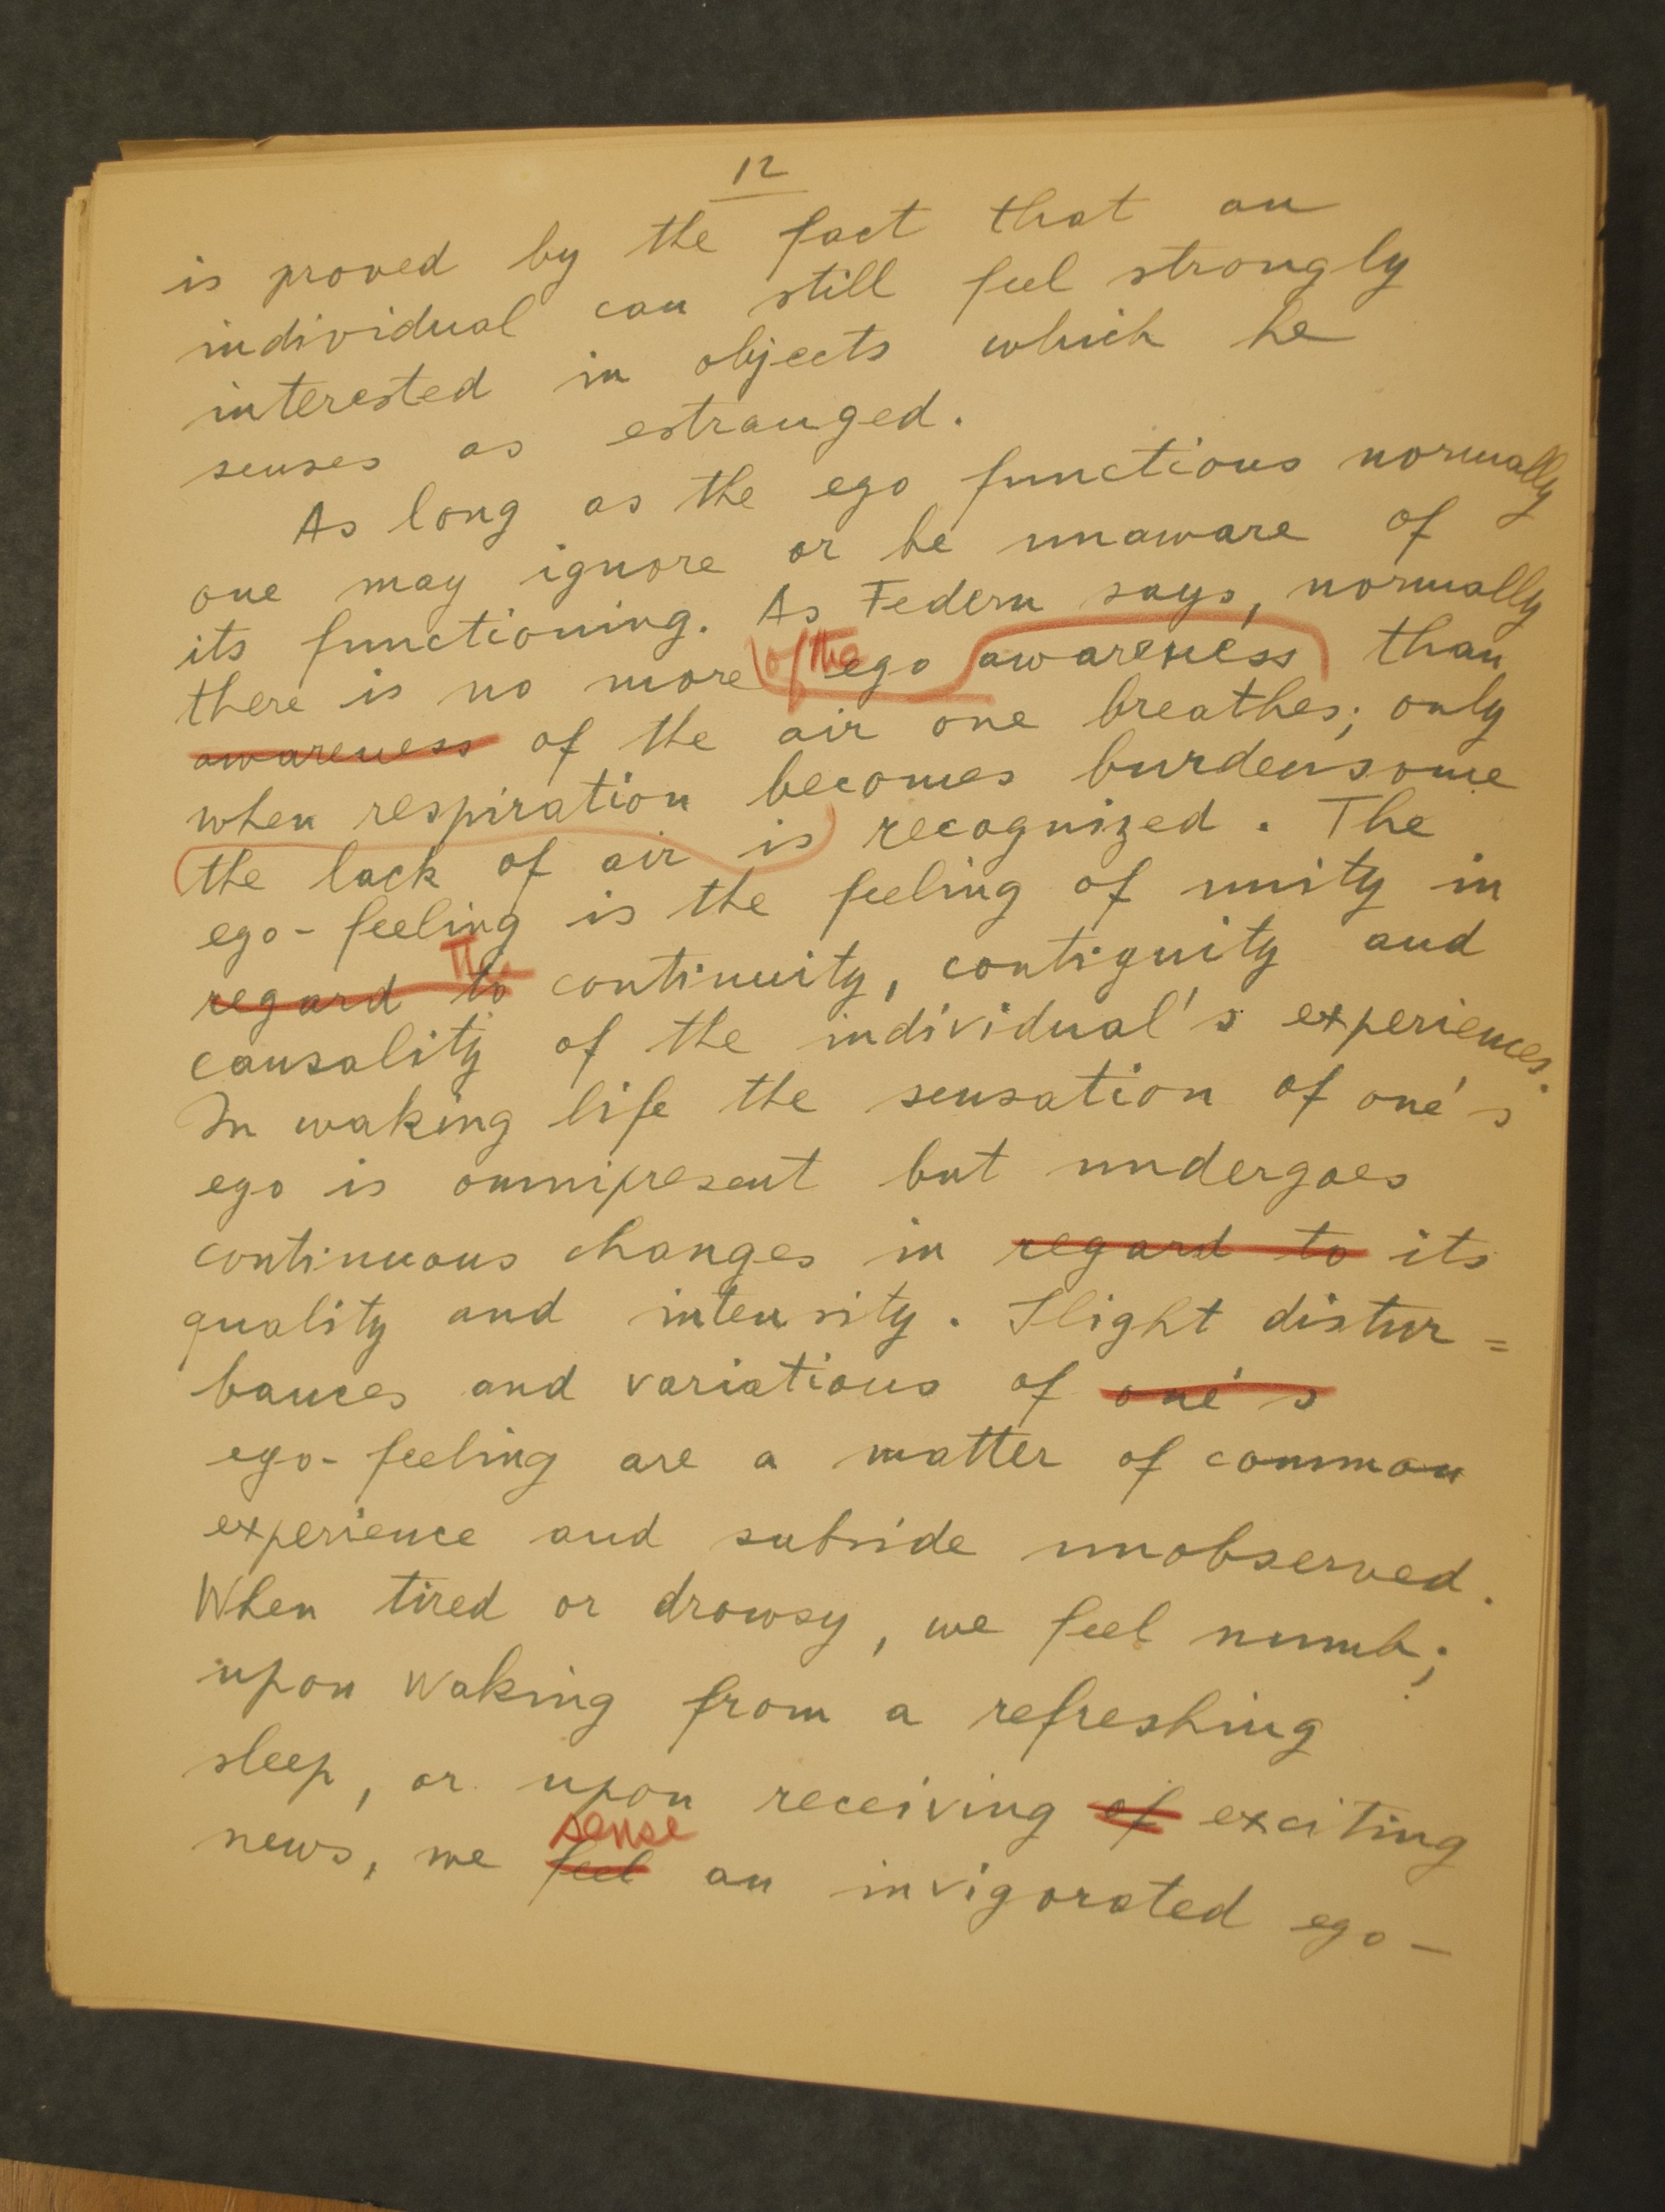 12
is proved by the fact that an
individual can still feel strongly
interested in objects which he
senses as estranged.
As long as the ego functions normally
one may ignore or be unaware of
its functioning. As Federn says, normally
there is no more of the ego awareness than
awareness of the air one breathes; only
when respiration becomes burdensome
the lack of air is recognized. The
ego-feeling is the feeling of unity in
The
regard to continuity, contiguity and
causality of the individual's experiences.
In waking life the sensation of one's
ego is omnipresent but undergoes
continuous changes in regard to its
quality and intensity. Slight distur=
bances and variations of one's
ego-feeling are a matter of common
experience and subside unobserved.
When tired or drowsy, we feel numb;
upon waking from a refreshing
sleep, or upon receiving of exciting
sense
news, we feel an invigorated ego-